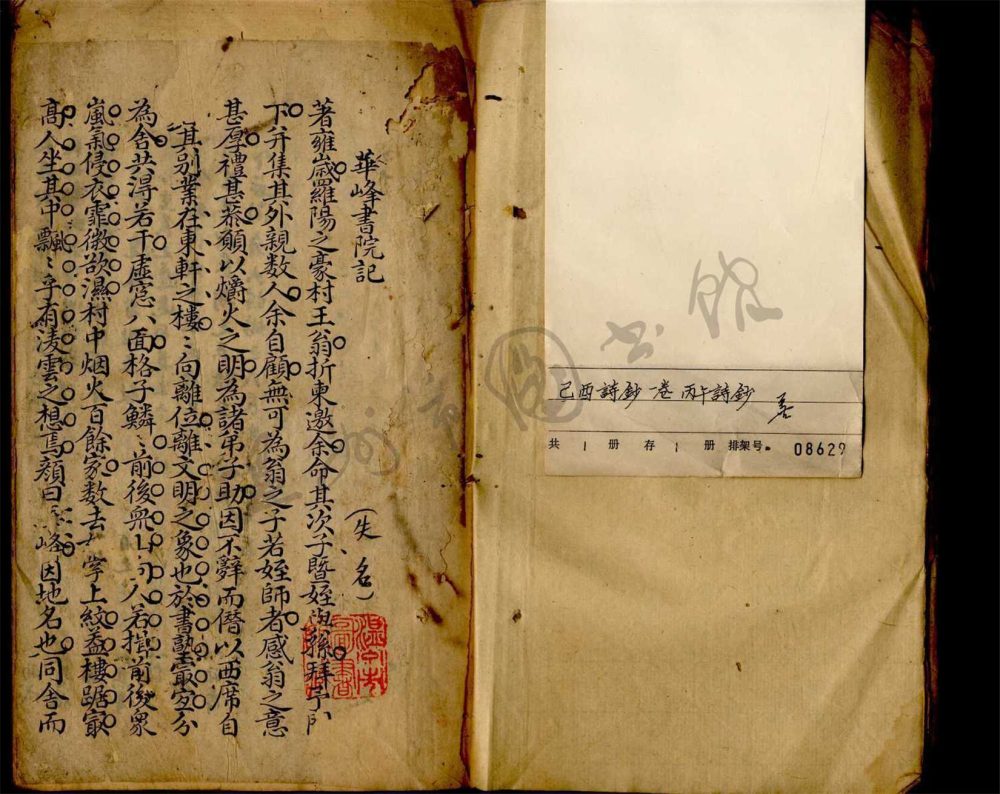 華峰書院記
(失名)
著雍歲羅陽之豪村王翁折東邀余命其次子暨姪孫拜予門
下并集其外親数人余自顧無可為翁之子若姪師者感翁之意
甚厚禮甚恭願以爝火之明為諸弟子助因不辭而僭以西席自
其别業在東軒之樓〻向離位離文明之象也於書塾最宜分
為舍共淂若干虛窓八面格子鱗〻前後人若揖前後衆
嵐氣侵衣霏微欲濕村中烟火百餘家数去掌上紋盖樓踞最
高人坐其中飄〻乎有凌雲之想焉顔曰峰因地名也同舍而
己酉詩鈔一卷 丙午詩鈔 善
共 1 册 存 1 册 排架号. 08629
圖書館